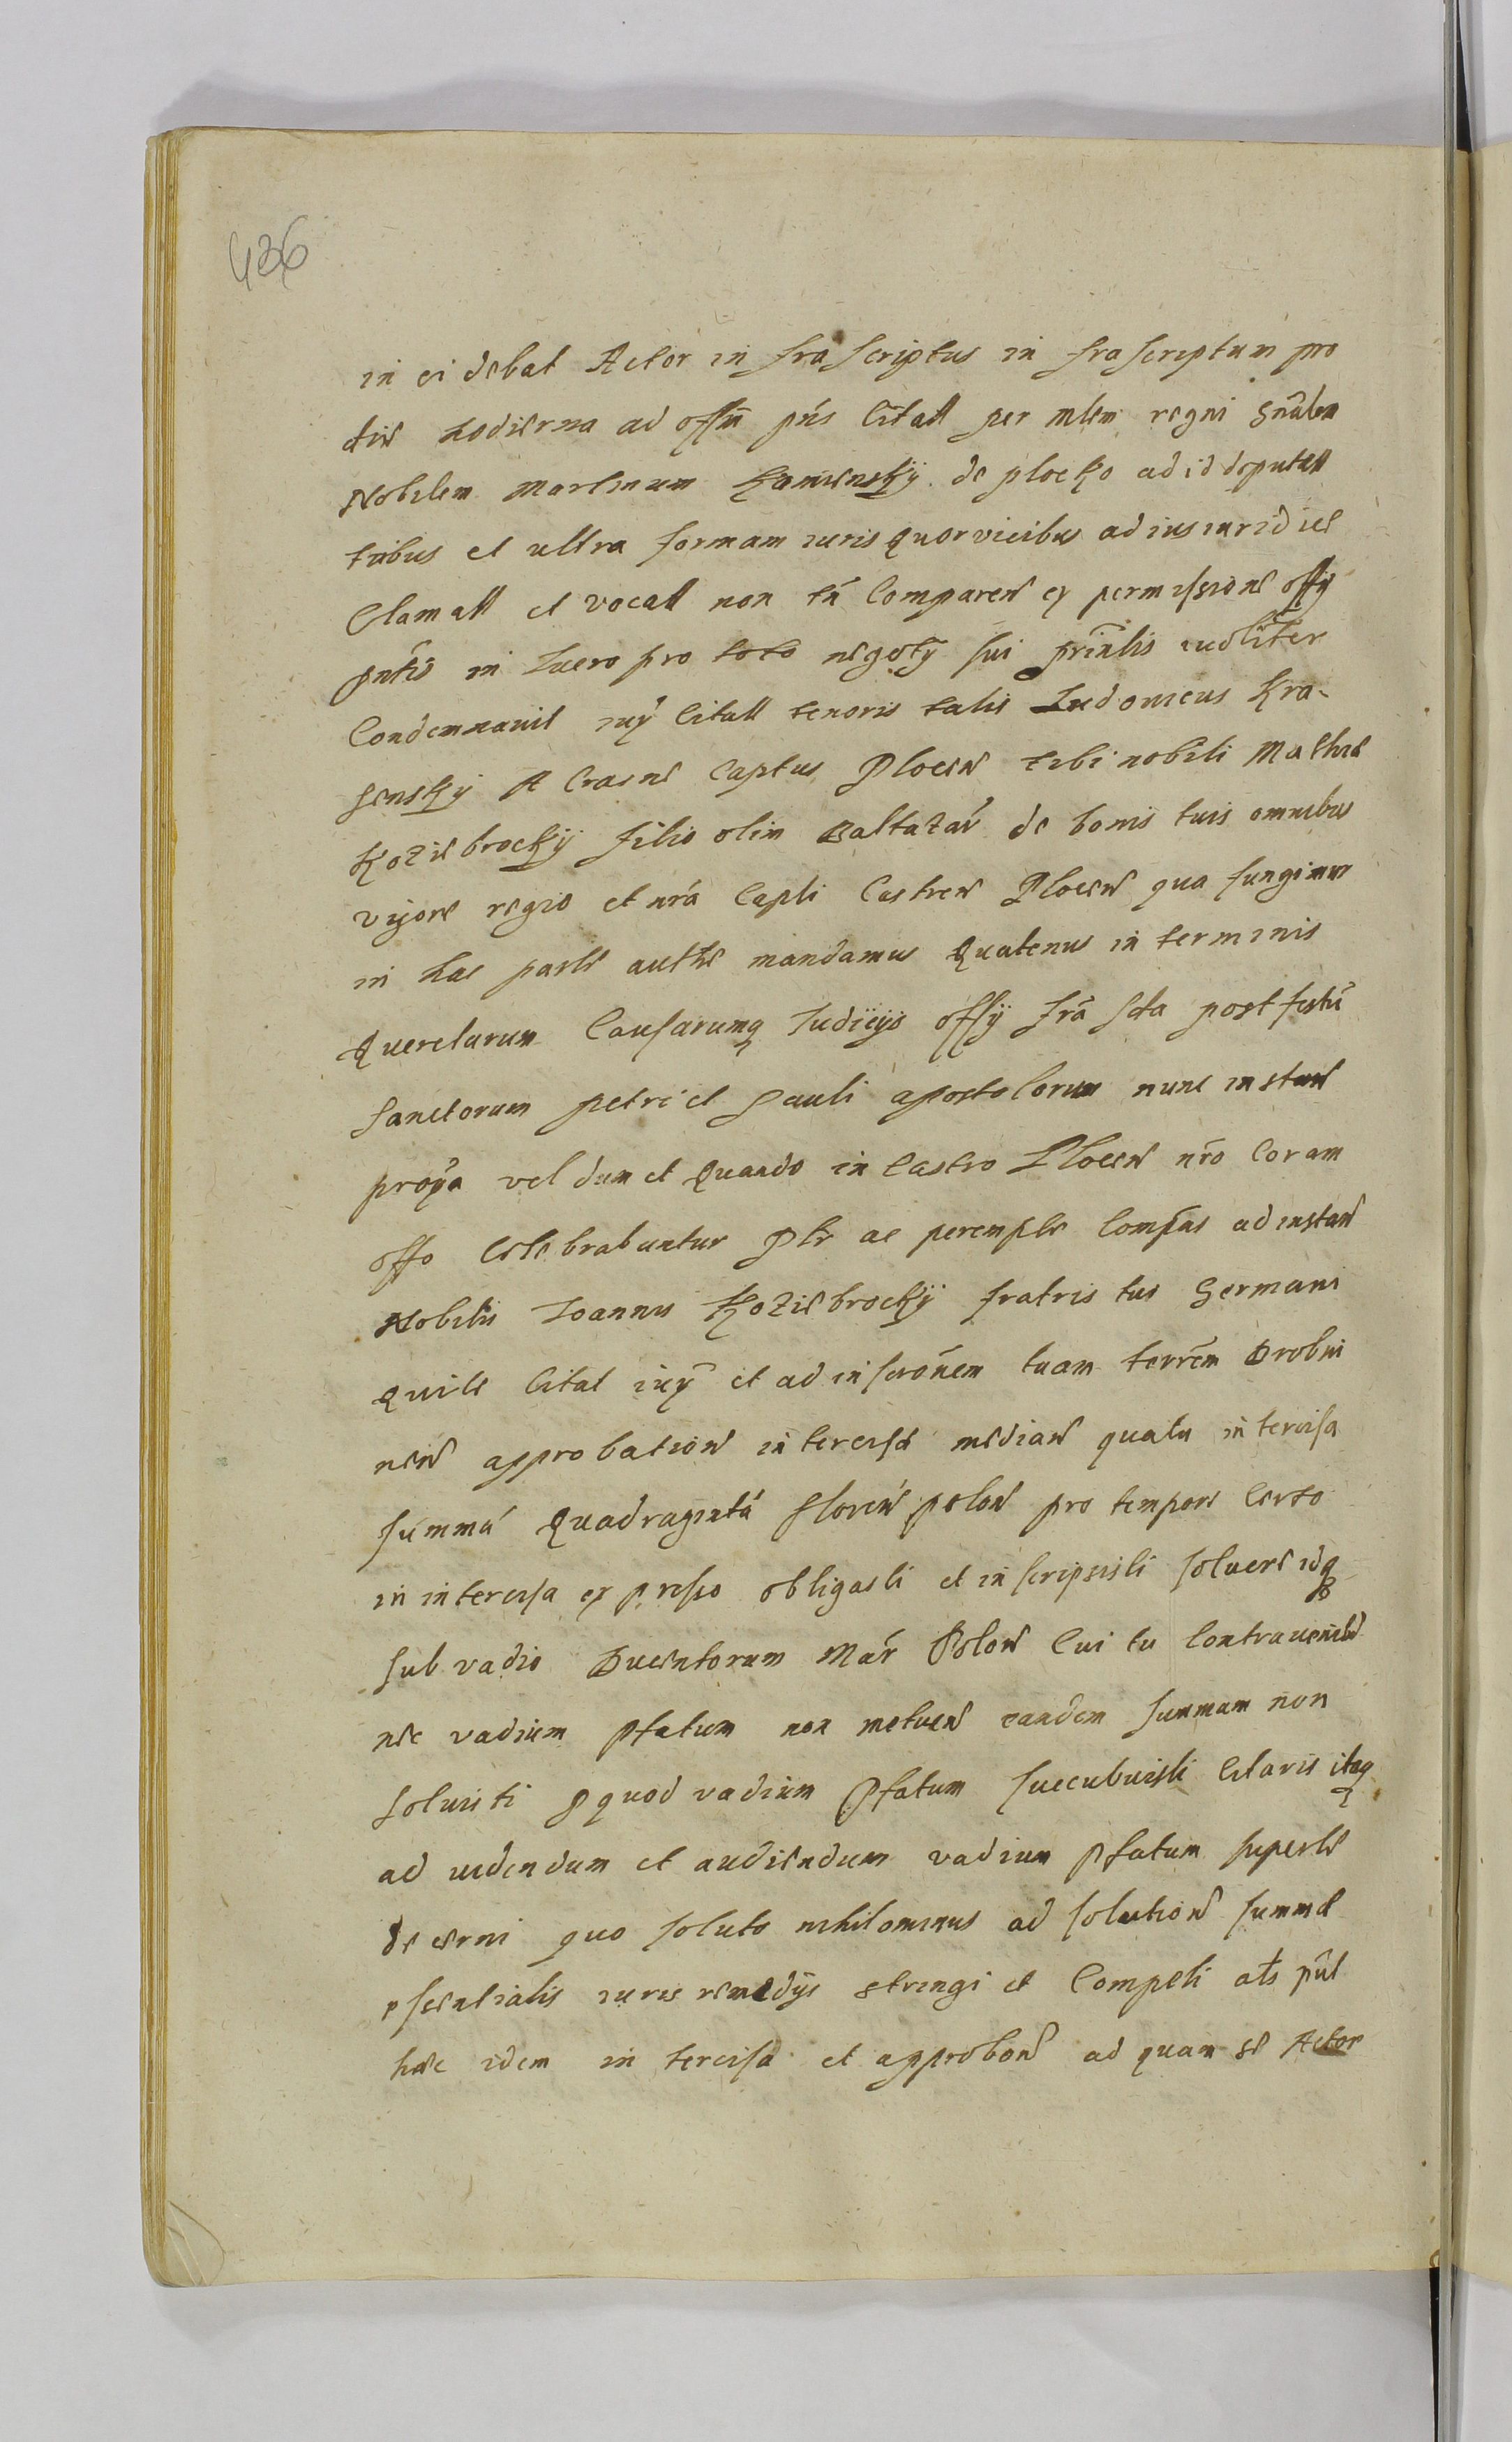 436
in ei debat Actor in fra scriptus in fra scriptum pro
die hodierna ad offm pns Citatt per mlem regni gnalem
Nobilem Martinum Kamienskÿ de plocko ad id deputatt
tribus et ultra formam iuris quor vicibus ad ius iuridice
Clamatt et vocatt non tn Comparen ex permissione offÿ
pntis in Lucro pro toto negotÿ sui prinlis iudliter
Condemnavit cuÿ Citatt tenoris talis Ludovicus Kra-
senskÿ A Crasne Captus Plocen tibi nobili Mathie
Koziebrockÿ filio olim Baltazar de bonis tuis omnibus
vigore regio et nra Capli Castren Plocen qua fungimur
in hac parte authe mandamus Quatenus in terminis
Querelarum Causarumq Iudicÿs offÿ fra scta post festu
sanctorum petri et Pauli apostolorum nunc instan
proxa vel dum et Quando in Castro Plocen nro Coram
offo Celebrabuntur Plr ac perempte Compas ad instan
Nobilis Ioannis Koziebrockÿ fratris tui Germani
Qui te Citat iux et ad inscronem tuam terrem Drobni
nen approbation intercisa median quatu intercisa
summa Quadraginta floren polon pro tempore Certo
in intercisa expresso obligasti et inscripsisti solvere idq
sub vadio Ducentorum Mar Polon Cui tu Contravenien
nec vadium Pfatum non metuen eandem summam non
solvisti P quod vadium Pfatum succubuisti Citaris itaq
ad videndum et audiendum vadium Pfatum superte
decerni quo soluto nihilominus ad solution summe
essentialis iuris remedÿs stringi et Compelli ats put
haec idem in tercisa et approbon ad quam se Actor